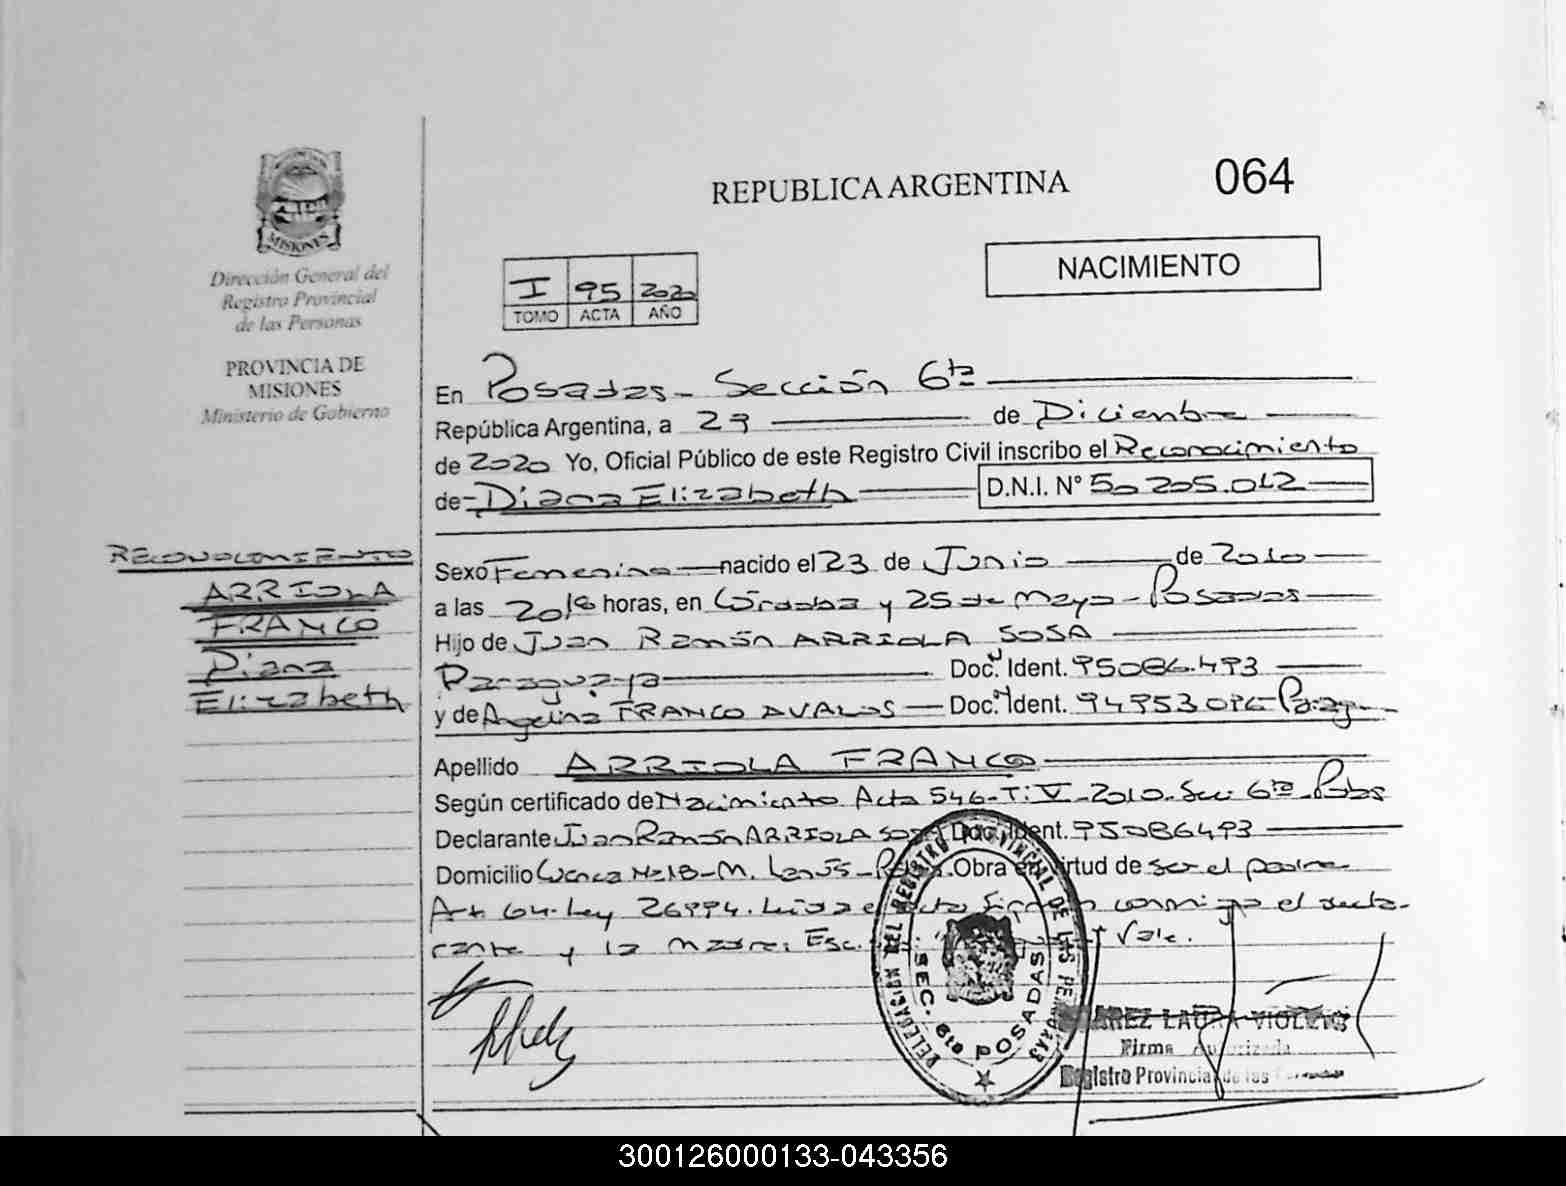 REPUBLICA ARGENTINA
064
MISIONES
Dirección General del
Registro Provincial
de las Personas
PROVINCIA DE
MISIONES
Ministerio de Gobierno
NACIMIENTO
I 95 2020
TOMO ACTA AÑO
En Posadas - Sección 6ta
República Argentina, a 29 de Diciembre
de 2020 Yo, Oficial Público de este Registro Civil inscribo el Reconocimiento
de Diana Elizabeth D.N.I. N° 50.205.012
RECONOCIMIENTO
ARRIOLA
FRANCO
Diana
Elizabeth
Sexo Femenino nacido el 23 de Junio de 2010
a las horas, en Córdoba y 25 de Mayo - Posadas
Hijo de Juan Ramón ARRIOLA SOSA
Paraguaya Doc. Ident. 95086.493
y de Angelina FRANCO AVALOS Doc. Ident.
Apellido ARRIOLA FRANCO
Según certificado de Nacimiento Acta 546-T:V-2010-Sec: 6ta
Declarante Juan Ramón ARRIOLA SOSA Doc. Ident. 95086493
Domicilio Obra en virtud de ser el padre
Art 64. Ley 26994. conmigo el decla-
rante y la madre. Esc. Vale.
DELEGACION DEL REGISTRO PROVINCIAL DE LAS PERSONAS
SEC. 6ta POSADAS
LAURA VIOLETA
Firma Autorizada
Registro Provincial de las Personas
300126000133-043356